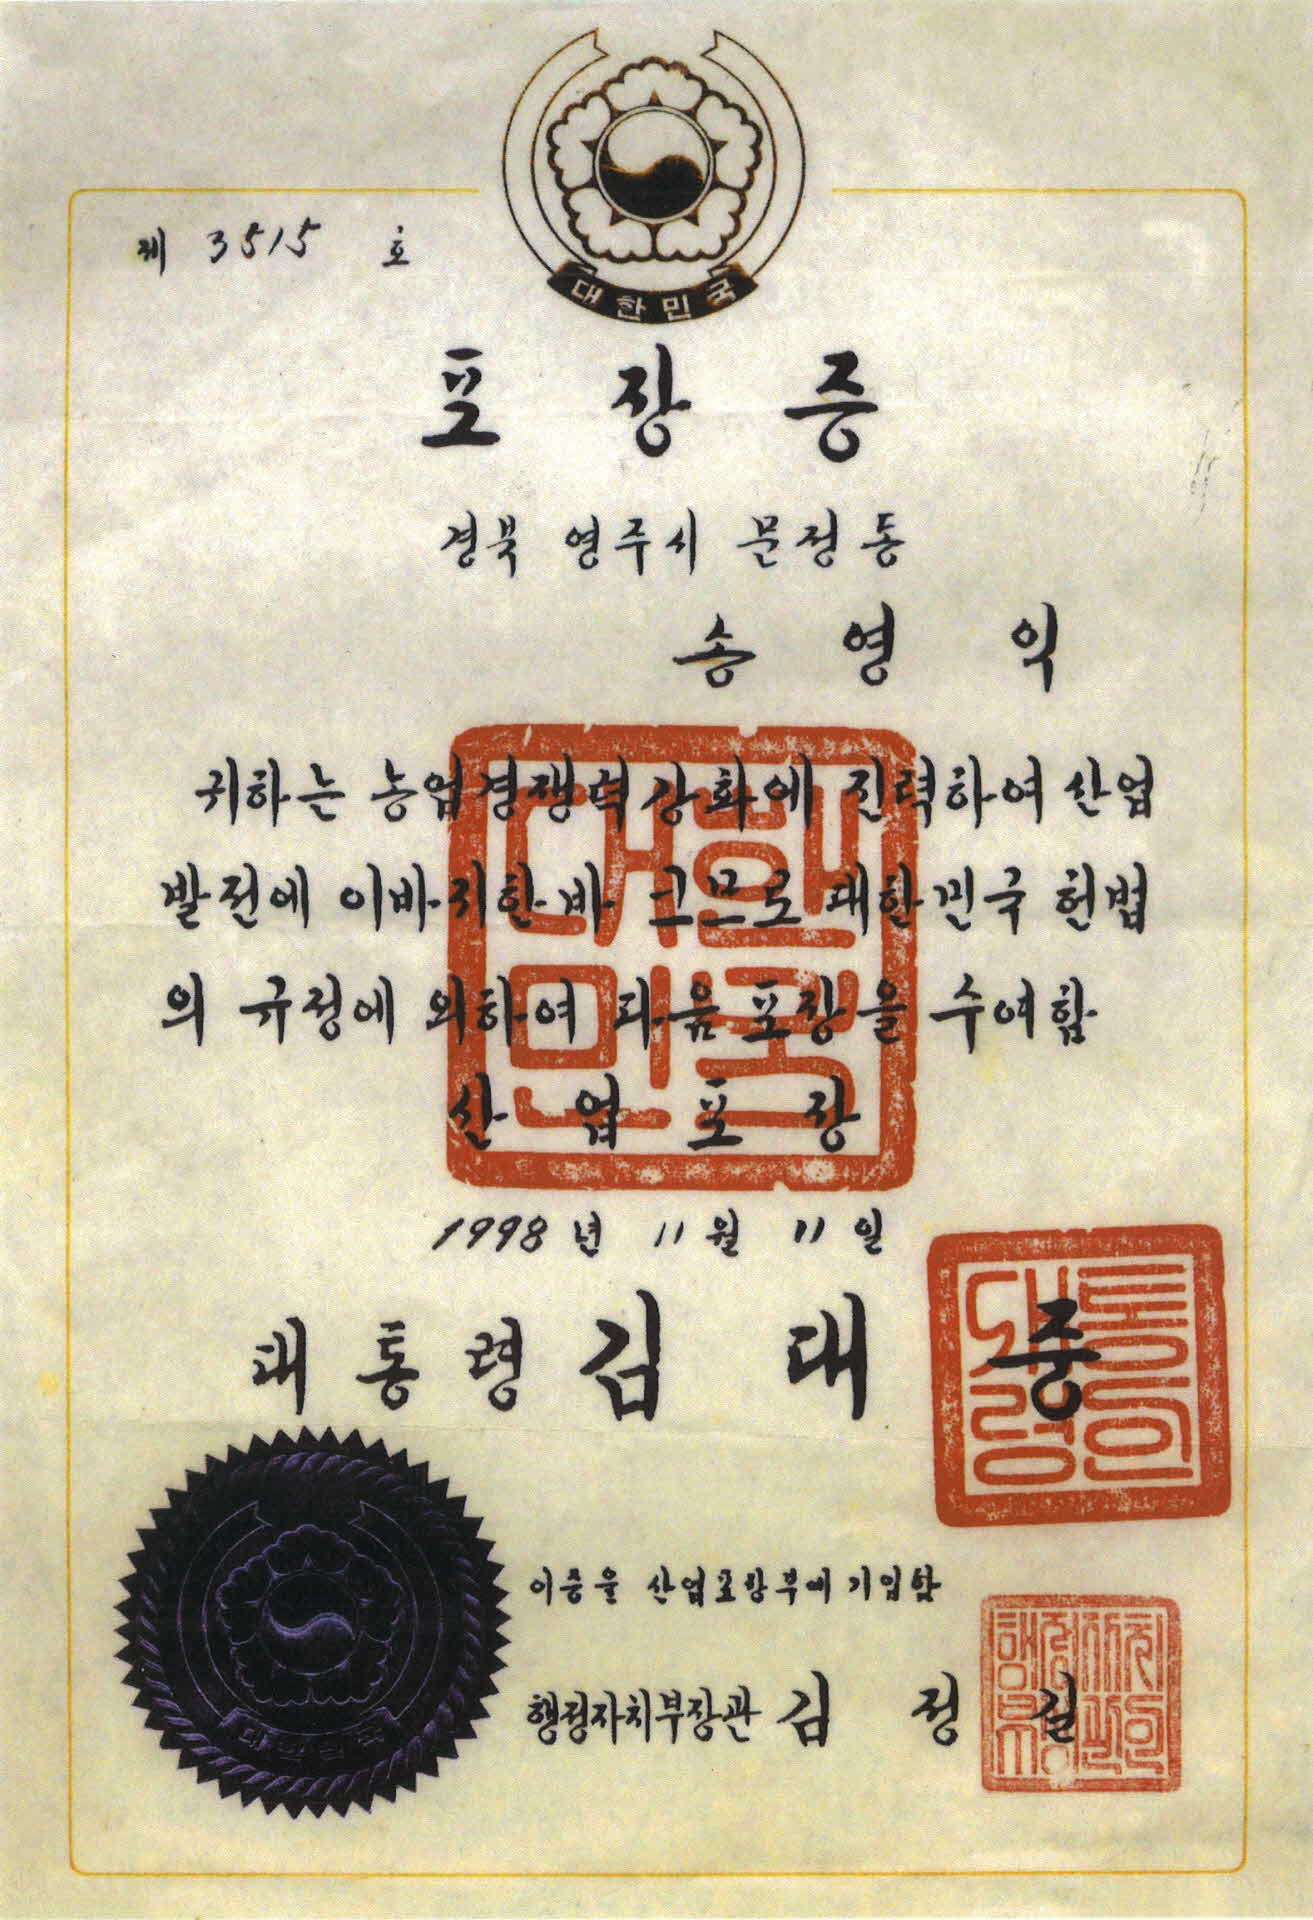 대한민국
제 3515 호
포장증
경북 영주시 문정동
송영익
귀하는 농업경쟁력강화에 진력하여 산업
발전에 이바지한 바 크므로 대한민국 헌법
의 규정에 의하여 다음 포장을 수여함
산업포장
1998년 11월 11일
대통령 김대중
이증을 산업포장부에 기입함
행정자치부장관 김정길
대한민국
대한민국
대통령의인